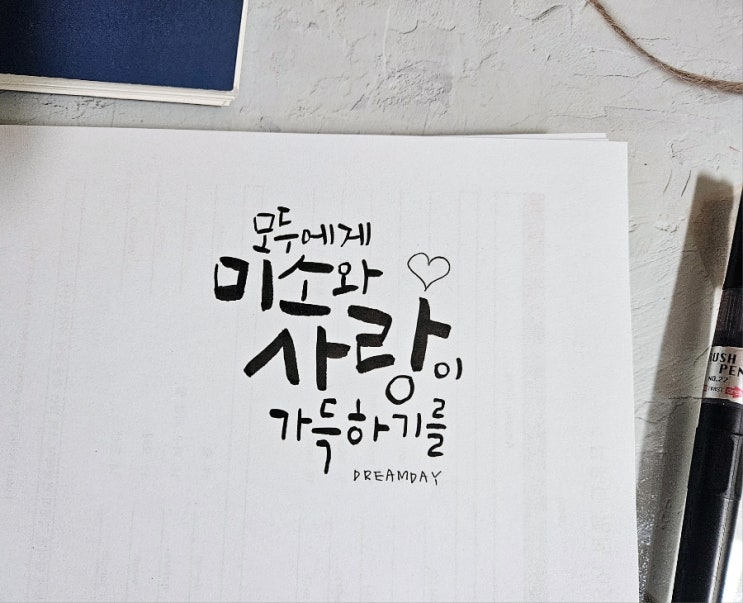 모두에게
미소와
사랑이
가득하기를
DREAMDAY
PEN
NO.22